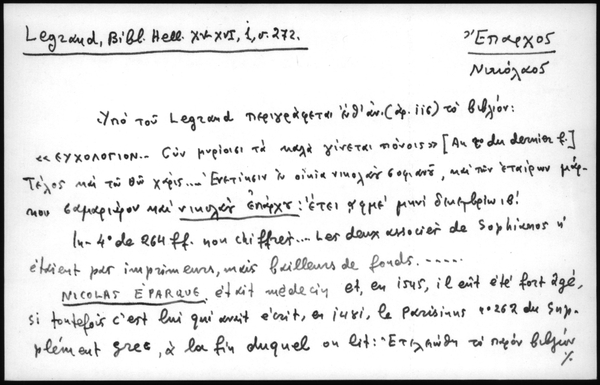 Legrand, Bibl. Hell. XV-XVI, i, σ. 272.
Ἔπαρχος
Νικόλαος
Ὑπὸ τοῦ Legrand περιγράφεται ἔνθ' ἀν. (ἀρ. 116) τὸ βιβλίον:
«ΕΥΧΟΛΟΓΙΟΝ... Σὺν μυρίοισι τὰ καλὰ γίνεται πόνοις» [Au vo du dernier f.]
Τέλος καὶ τῷ θῷ χάρις... Ἐνετίησιν ἐν οἰκίᾳ νικολάου σοφιανοῦ, καὶ τῶν ἑταίρων μάρ-
κου σαμαριάρου καὶ νικολάου ἐπάρχου: ἔτει ͵αφμεʹ μηνὶ δεκεμβρίῳ ιβʹ
In-4º de 264 ff. non chiffrés... Les deux associés de Sophianos n'
étaient pas imprimeurs, mais bailleurs de fonds......
NICOLAS ÉPARQUE était médecin et, en 1545, il eût été fort âgé,
si toutefois c'est lui qui avait écrit, en 1481, le Parisinus nº 262 du Sup-
plément grec, à la fin duquel on lit: Ἐτελειώθη τὸ παρὸν βιβλίον
%